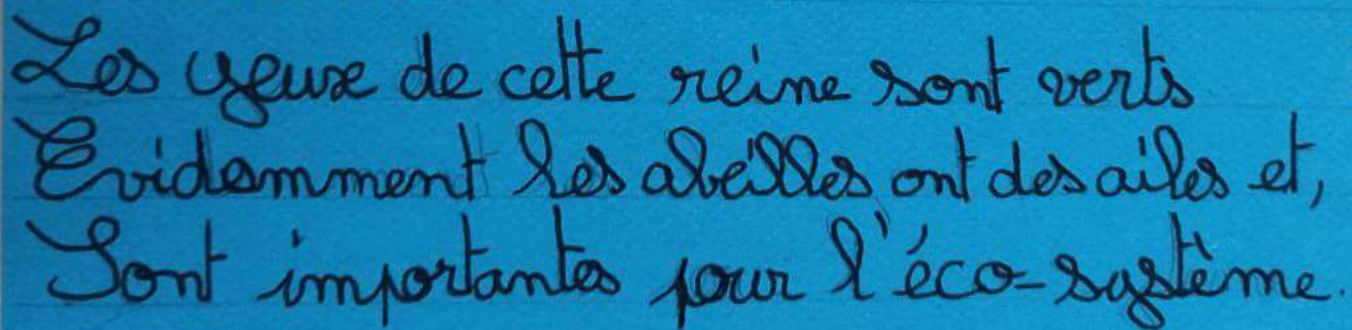 Les yeux de cette reine sont verts
Evidemment les abeilles ont des ailes et,
Sont importantes pour l'éco-système.